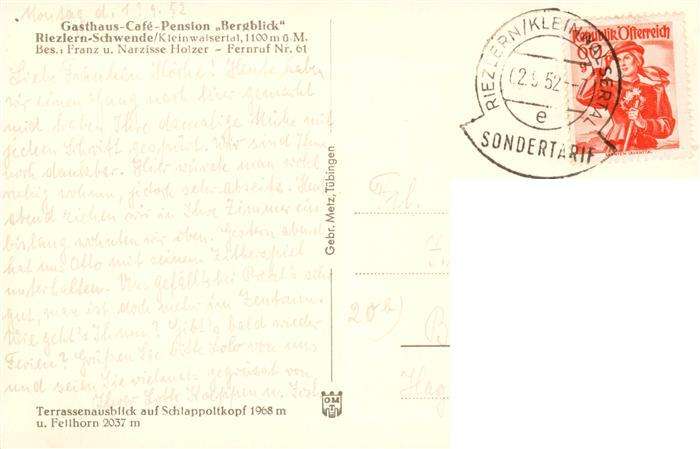 Montag, d. 1. 9. 52
Gasthaus-Café-Pension „Bergblick"
Riezlern-Schwende/Kleinwalsertal, 1100 m ü. M.
Bes.: Franz u. Narzisse Holzer - Fernruf Nr. 61
Liebes Fräulein Höcke! Heute haben
wir einen Gang nach hier gemacht
und haben Ihre damalige Mühe mit
jedem Schritt gespürt. Wir sind Ihnen
noch dankbar. Hier würde man wohl
ruhig wohnen, jedoch sehr abseits. Heute
abend ziehen wir in Ihre Zimmer ein
bislang wohnten wir oben. Gestern abend
hat uns Otto mit seinem Zitherspiel
unterhalten. Uns gefällt's bei
gut, man ist doch mehr im Zentrum.
Wie geht's Ihnen? Gibt's bald wieder
Ferien? Grüßen Sie bitte Lolo von uns
und seien Sie vielmals gegrüsst von
Ihrer Lotte u.
Terrassenausblick auf Schlappoltkopf 1968 m
u. Fellhorn 2037 m
Gebr. Metz, Tübingen
GM
T
RIEZLERN/KLEINWALSERTAL
02.9.52
e
SONDERTARIF
Republik Österreich
60
Frl.
20b)
B
Hag